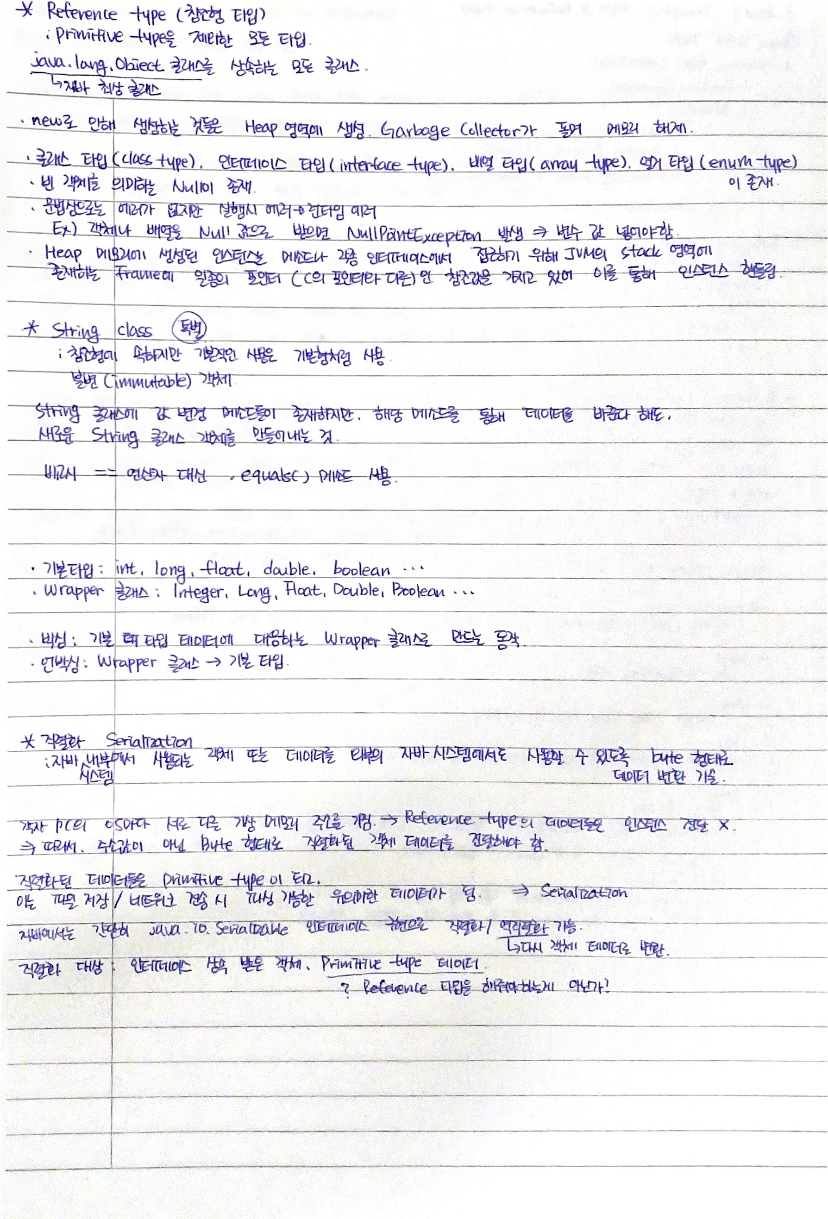 * Reference type (참조형 타입)
: Primitive type을 제외한 모든 타입.
java.lang.Object 클래스를 상속하는 모든 클래스.
↳자바 최상 클래스
· new로 인해 생성하는 것들은 Heap 영역에 생성. Garbage Collector가 돌며 메모리 해제.
· 클래스 타입(class type), 인터페이스 타입(interface type), 배열 타입(array type), 열거 타입(enum type)
이 존재.
· 빈 객체를 의미하는 Null이 존재.
· 문법상으로는 에러가 없지만 실행시 에러→런타임 에러
Ex) 객체나 배열을 Null 값으로 받으면 NullPointException 발생 ⇒ 변수 값 넣어야함.
· Heap 메모리에 생성된 인스턴스는 메소드나 각종 인터페이스에서 접근하기 위해 JVM의 stack 영역에
존재하는 Frame에 일종의 포인터 (C의 포인터와 다름)인 참조값을 가지고 있어 이를 통해 인스턴스 핸들링.
* String class 특별
: 참조형에 속하지만 기본적인 사용은 기본형처럼 사용.
불변(immutable) 객체
String 클래스에 값 변경 메소드들이 존재하지만, 해당 메소드를 통해 데이터를 바꾼다 해도,
새로운 String 클래스 객체를 만들어내는 것.
비교시 == 연산자 대신 .equals() 메소드 사용.
· 기본타입: int, long, float, double, boolean ···
· Wrapper 클래스: Integer, Long, Float, Double, Boolean ···
· 박싱: 기본 타입 데이터에 대응하는 Wrapper 클래스로 만드는 동작
· 언박싱: Wrapper 클래스 → 기본 타입.
* 직렬화 Serialization
: 자바 시스템 내부에서 사용되는 객체 또는 데이터를 외부의 자바 시스템에서도 사용할 수 있도록 byte 형태로
데이터 변환 기술.
각자 PC의 OS마다 서로 다른 가상 메모리 주소를 가짐. → Reference type의 데이터들은 인스턴스 전달 X.
⇒ 따라서, 주소값이 아닌 Byte 형태로 직렬화된 객체 데이터를 전달해야 함.
직렬화된 데이터들은 Primitive type이 되고,
이는 파일 저장 / 네트워크 전송 시 파싱 가능한 유의미한 데이터가 됨 ⇒ Serialization
자바에서는 간단히 java.io.Serializable 인터페이스 구현으로 직렬화/역직렬화 가능.
↳다시 객체 데이터로 변환.
직렬화 대상 : 인터페이스 상속 받은 객체, Primitive type 데이터.
? Reference 타입을 해줘야하는게 아닌가?